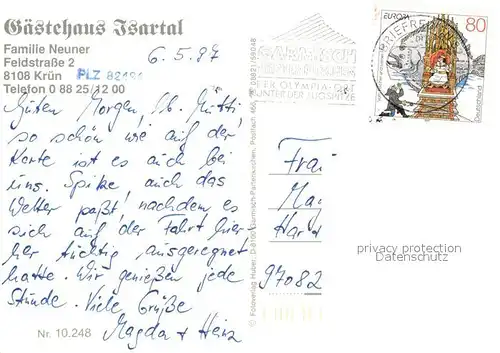 Gästehaus Isartal
Familie Neuner
Feldstraße 2
8108 Krün
PLZ 82494
Telefon 0 88 25/12 00
6.5.97
Guten Morgen, lb. Mutti
so schön wie auf der
Karte ist es auch bei
uns. Spitze, auch das
Wetter paßt, nachdem es
sich auf der Fahrt hier-
her tüchtig ausgeregnet
hatte. Wir genießen jede
Stunde. Viele Grüße
Magda + Heinz
Nr. 10.248
© Fotoverlag Huber, D-8100 Garmisch-Partenkirchen, Postfach
GARMISCH
PARTENKIRCHEN
DER OLYMPIA-ORT
UNTER DER ZUGSPITZE
BRIEFZE
EUROPA
80
Deutschland
Frau
Ma
Har
97082
privacy protection
Datenschutz